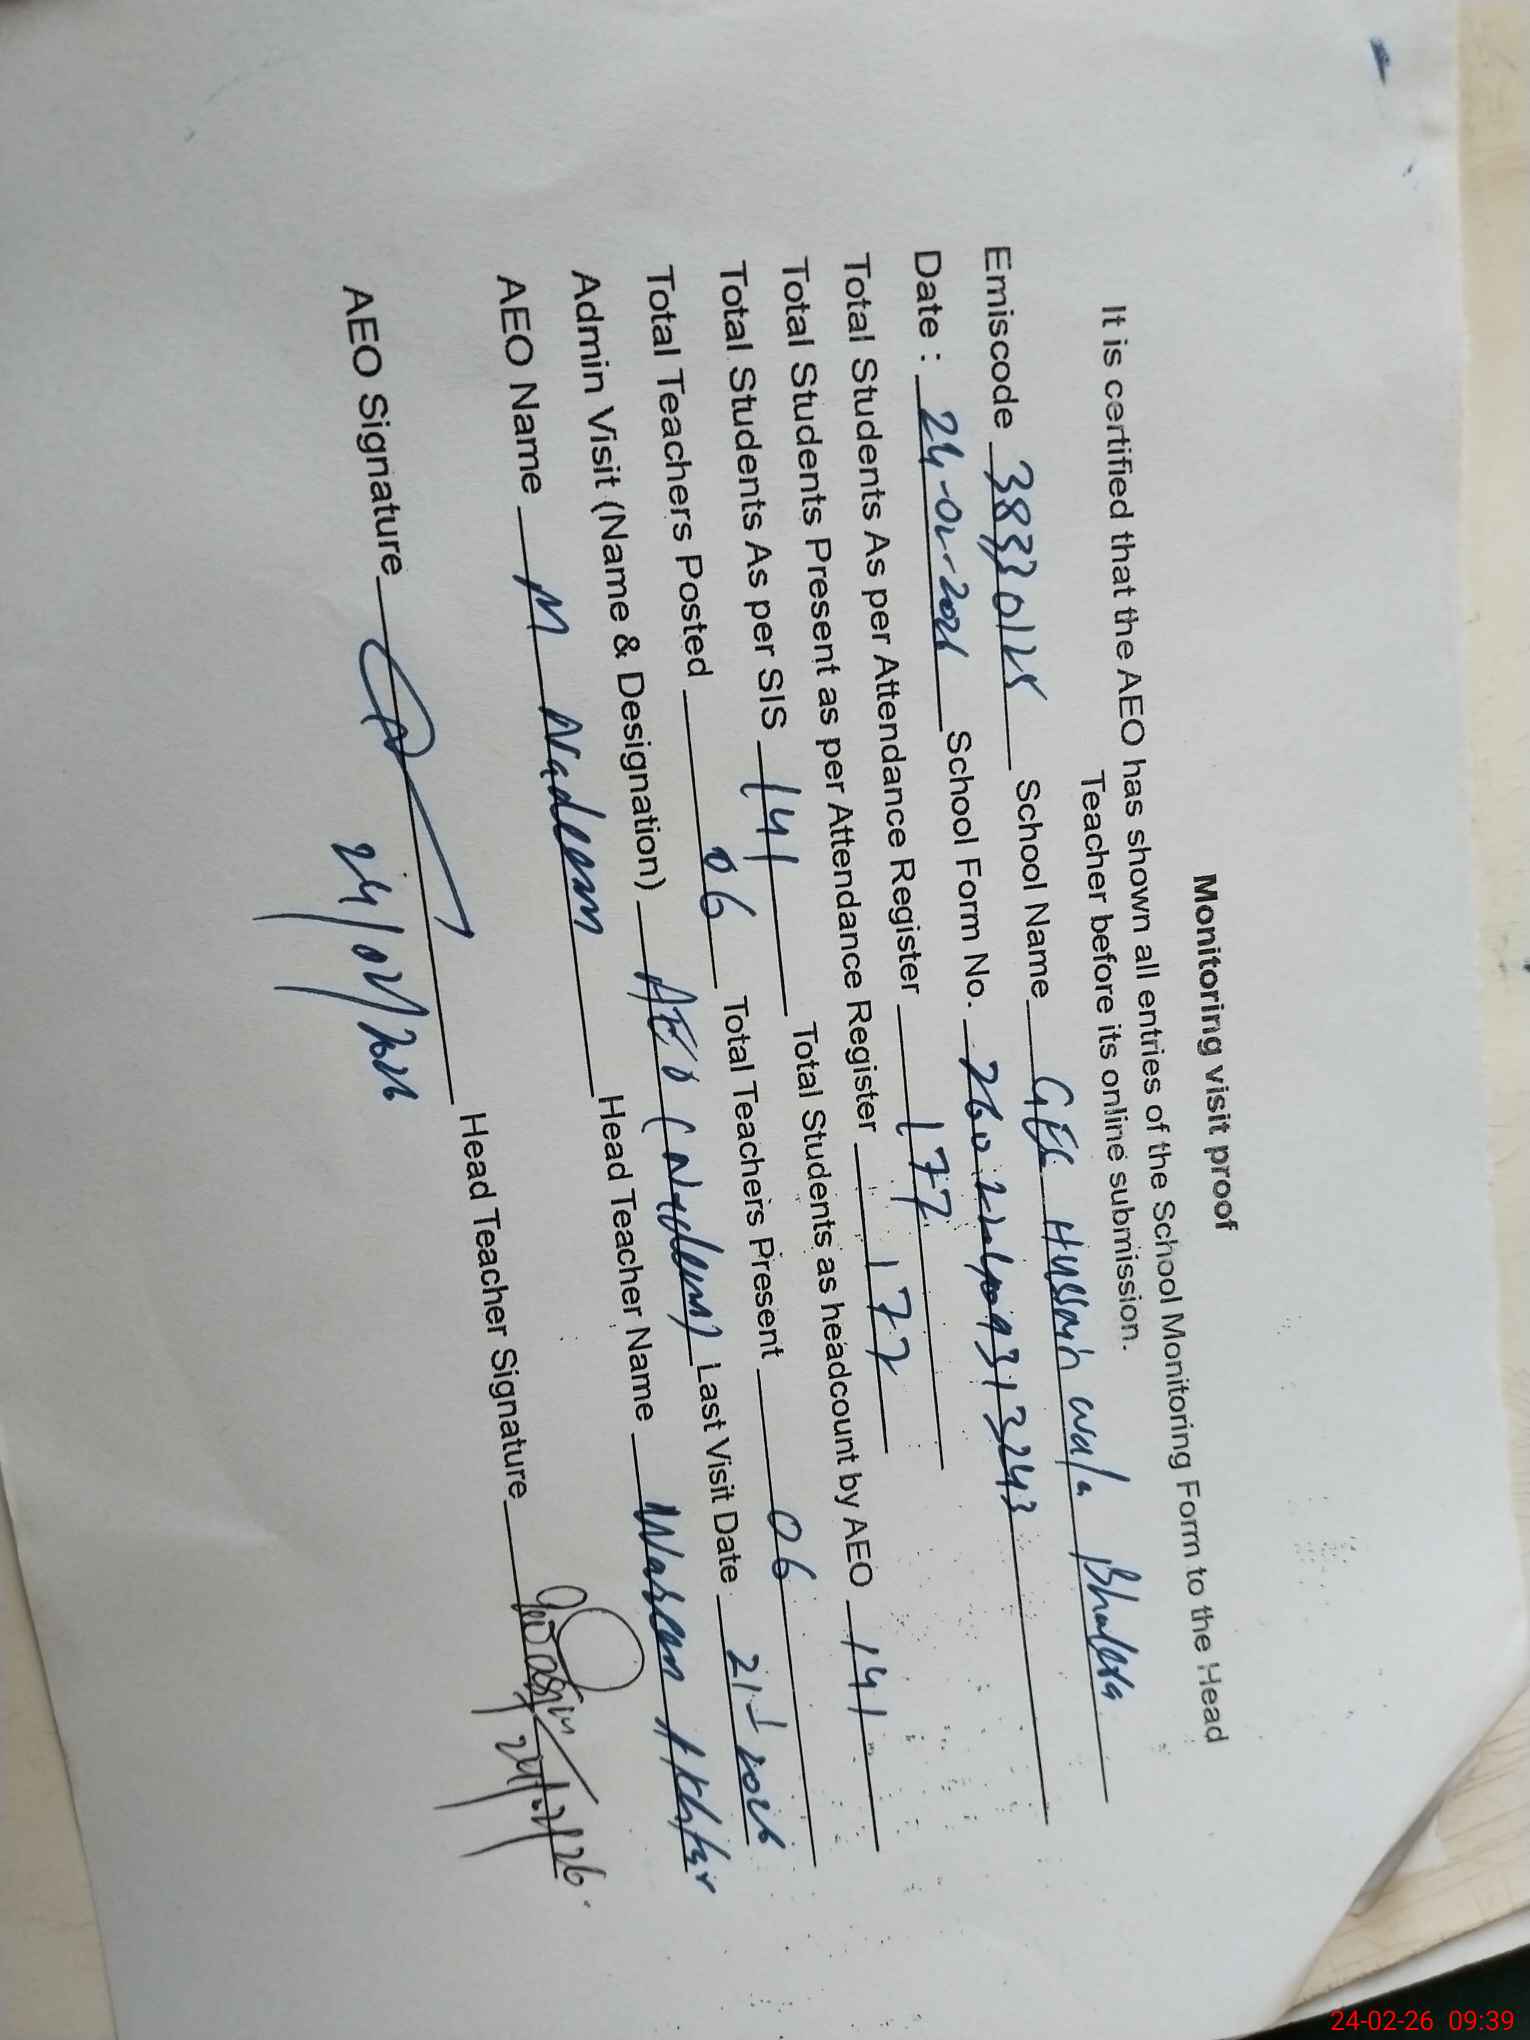 Monitoring visit proof
It is certified that the AEO has shown all entries of the School Monitoring Form to the Head
Teacher before its online submission.
Emiscode 38330125 School Name GES Hussain wala Bhalera
Date : 24-02-2026 School Form No.
Total Students As per Attendance Register 177
Total Students Present as per Attendance Register 177
Total Students As per SIS 141 Total Students as headcount by AEO 141
Total Teachers Posted 06 Total Teachers Present 06
Admin Visit (Name & Designation) AEO (Nadeem) Last Visit Date 21-1-2026
AEO Name M Nadeem Head Teacher Name Waseem Akhtar
AEO Signature Head Teacher Signature
24/02/2026
24/02/26
24-02-26 09:39